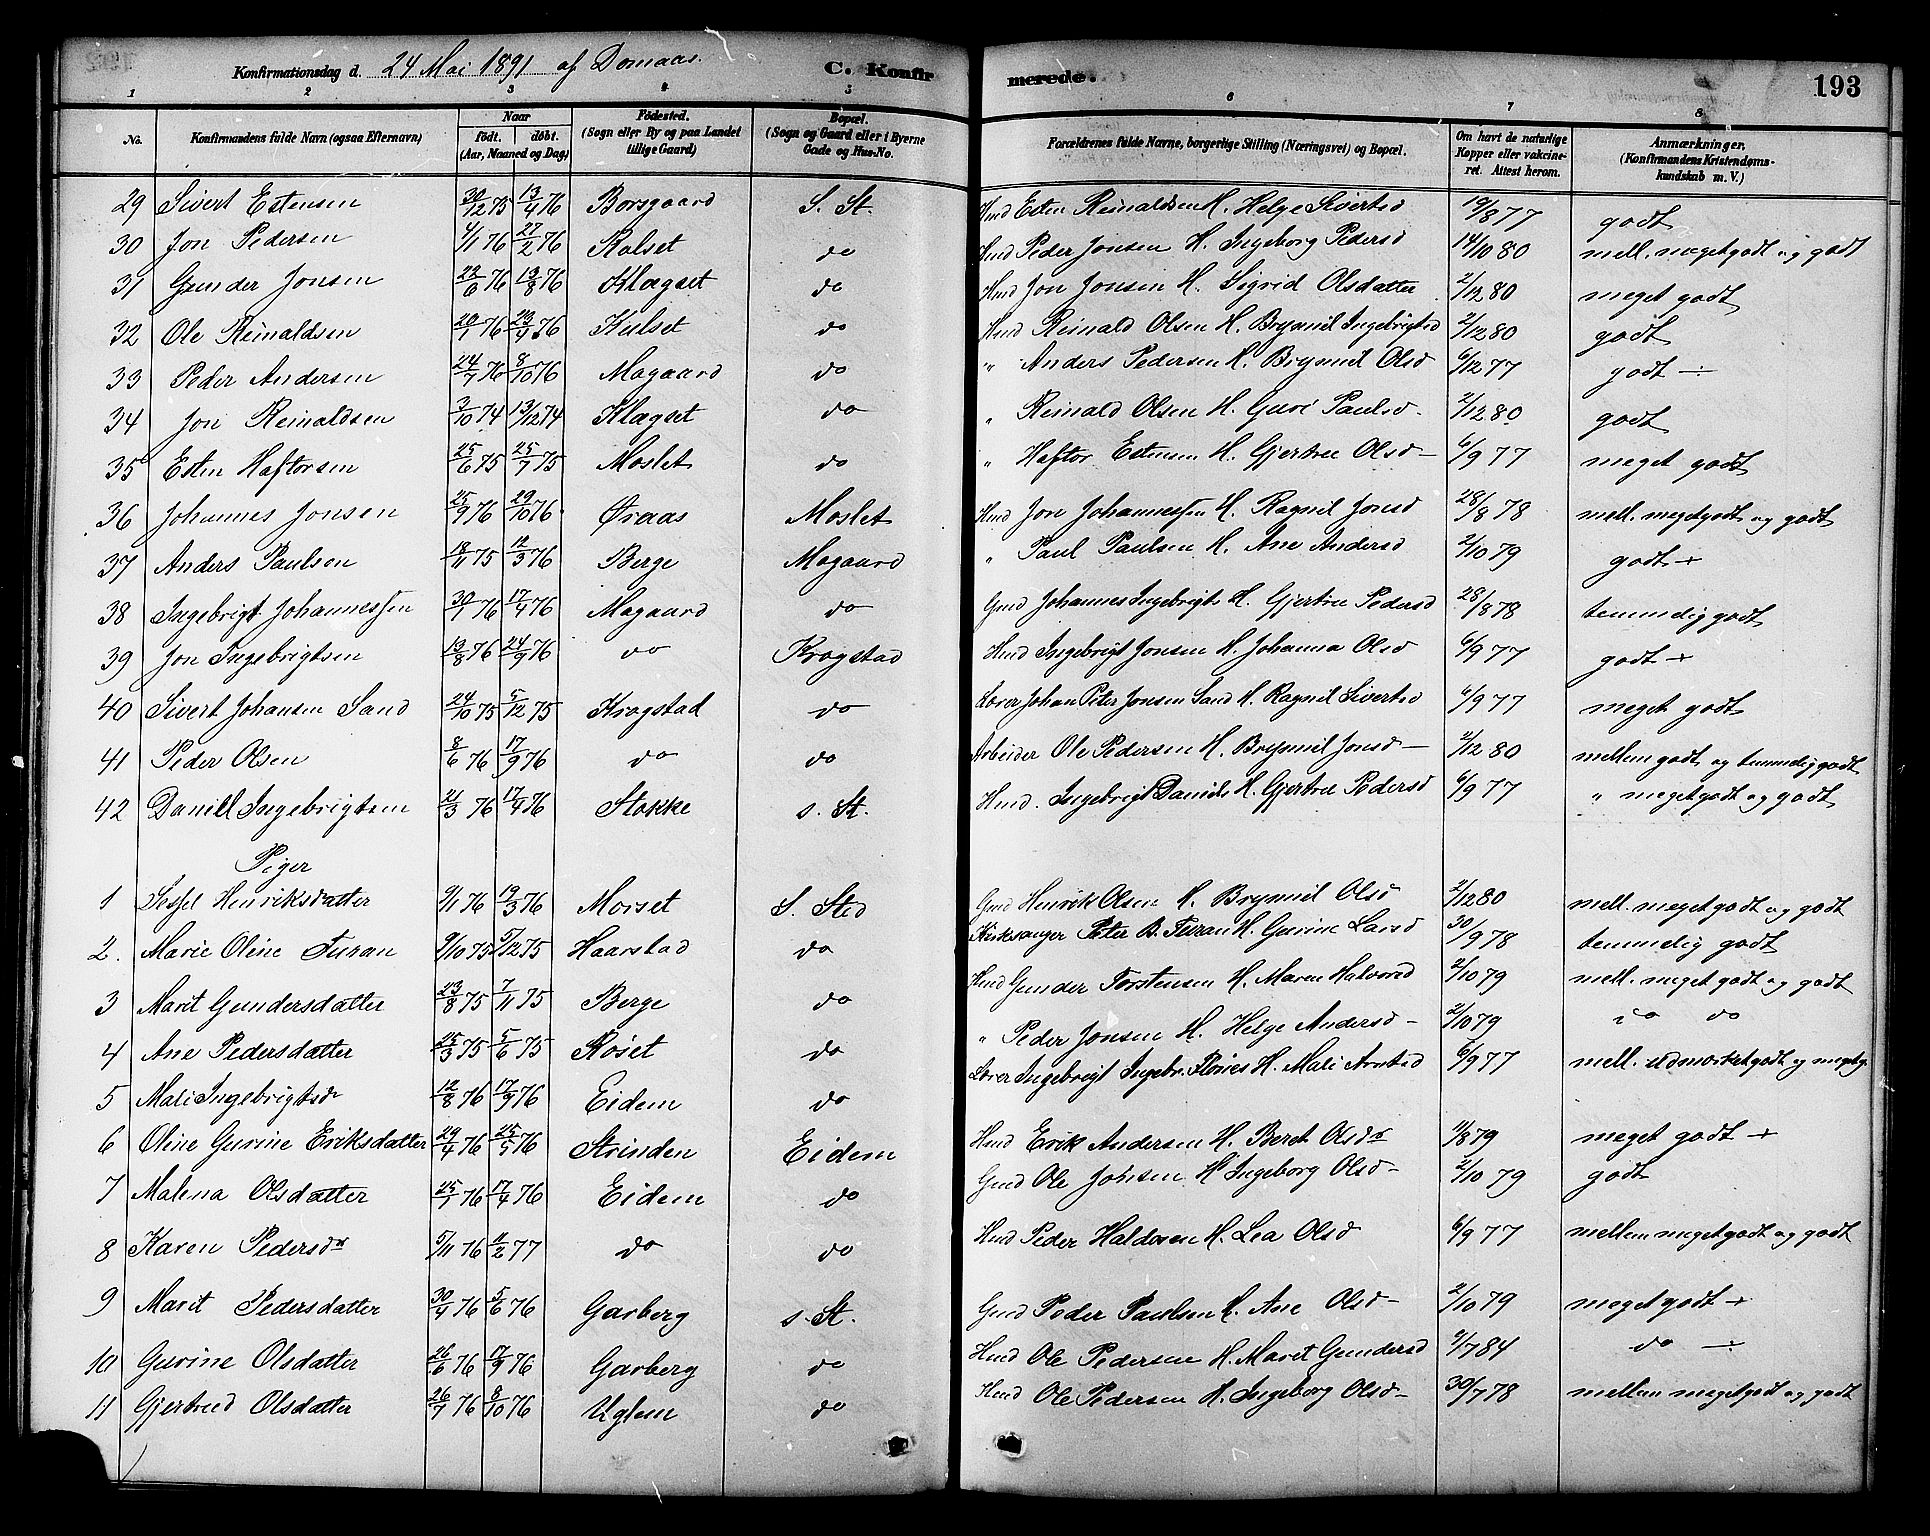 Konfirmationsdag d. 24 Mai 1891 af Domaas. C. Konfirmerede. 193
1 2 3 4 5 6 7 8
No. Konfirmandens fulde Navn (ogsaa Efternavn) Naar født. døbt. (Aar, Maaned og Dag) Fødested. (Sogn eller By og paa Landet tillige Gaard) Bopæl. (Sogn og Gaard eller i Byerne Gade og Hus-No. Forældrenes fulde Navne, borgerlige Stilling (Næringsvei) og Bopæl. Om havt de naturlige Kopper eller vakcineret. Attest herom. Anmærkninger. (Konfirmandens Kristendomskundskab m. V.)
29 Sivert Estensen 30/12 75 13/4 76 Borsgaard S. St. Hmd Esten Reinaldsen H. Helge Sivertsd 19/8 77 godt
30 Jon Pedersen 4/1 76 27/2 76 Kalset do Hmd Peder Jonsen H. Ingeborg Pedersd 14/10 80 mell. megetgodt og godt
31 Gunder Jonsen 22/6 76 13/8 76 Klægset do Hmd Jon Jonsen H. Sigrid Olsdatter 2/12 80 meget godt
32 Ole Reinaldsen 20/1 76 23/4 76 Kulset do Hmd Reinald Olsen H. Brynnil Ingebrigtsd 2/12 80 godt
33 Peder Andersen 24/7 76 8/10 76 Mogaard do " Anders Pedersen H. Brynnil Olsd 6/12 77 godt ÷
34 Jon Reinaldsen 3/10 74 13/12 74 Klægset do " Reinald Olsen H. Guri Paulsd. 2/12 80 godt
35 Esten Haftorsen 25/6 75 25/7 75 Moslet do " Haftor Estensen H. Gjertru Olsd 6/9 77 meget godt
36 Johannes Jonsen 25/9 76 29/10 76 Øraas Moslet Hmd Jon Johannessen H. Ragnil Jonsd 28/8 78 mell. megetgodt og godt
37 Anders Paulsen 18/11 75 12/3 76 Berge Mogaard " Paul Paulsen H. Ane Andersd 2/10 79 godt +
38 Ingebrigt Johannessen 30/1 76 17/4 76 Mogaard do Gmd Johannes Ingebrigts H. Gjertru Pedersd 28/8 78 temmelig godt
39 Jon Ingebrigtsen 13/8 76 24/9 76 do Krogstad Hmd Ingebrigt Jonsen H. Johanna Olsd 6/9 77 godt +
40 Sivert Johansen Sand 24/10 75 5/12 75 Krogstad do Lærer Johan Peter Jonsen Sand H. Ragnil Sivertsd 6/9 77 meget godt
41 Peder Olsen 8/6 76 17/9 76 do do Arbeider Ole Pedersen H. Brynnil Jonsd 2/12 80 mellem godt og temmelig godt
42 Daniel Ingebrigtsen 21/3 76 17/4 76 Stokke s. St. Hmd. Ingebrigt Daniels H. Gjertru Pedersd 6/9 77 " megetgodt og godt
Piger
1 Sessel Henriksdatter 9/1 76 19/3 76 Morset S. Sted Gmd Henrik Olsen H. Brynnil Olsd 2/12 80 mell. megetgodt og godt
2. Marie Oline Furan 9/10 75 5/12 75 Haarstad do Kirksanger Peter B. Furan H. Gurine Larsd 30/9 78 temmelig godt
3 Marit Gundersdatter 23/8 75 7/11 75 Berge do Hmd Gunder Torstensen H. Maren Halvorsd 2/10 79 mell. megetgodt og godt
4 Ane Pedersdatter 25/3 75 5/6 75 Røset do " Peder Jonsen H. Helge Andersd 2/10 79 do do
5 Mali Ingebrigtsd 12/8 76 17/9 76 Eidem do Lærer Ingebrigt Ingebr. Flønes H. Mali Arntsd 6/9 77 mell. udmærketgodt og megetg.
6 Oline Gurine Eriksdatter 29/4 76 25/5 76 Strinden Eidem Hmd Erik Andersen H. Beret Olsdr 11/8 79 meget godt +
7 Malena Olsdatter 25/1 76 17/4 76 Eidem do Gmd Ole Johnsen H Ingeborg Olsd 2/10 79 godt
8 Karen Pedersdr 5/11 76 11/2 77 do do Hmd Peder Haldosen H. Lea Olsd 6/9 77 mellem megetgodt og godt
9 Marit Pedersdatter 30/4 76 5/6 76 Garberg s. St. Gmd Peder Paulsen H. Ane Olsd 2/10 79 megetgodt +
10 Gurine Olsdatter 26/6 76 17/9 76 Garberg do Hmd Ole Pedersen H. Marit Gundersd 9/7 84 do ÷
11 Gjertrud Olsdatter 26/7 76 8/10 76 Uglem do Hmd Ole Pedersen H. Ingeborg Olsd 30/7 78 mellem megetgodt og godt